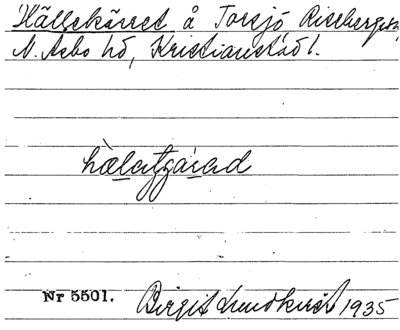 Hällekärret å Torsjö Riseberga s,
N. Åsbo hd, Kristianstad l.
Nr 5501. Birgit Lundkvist 1935